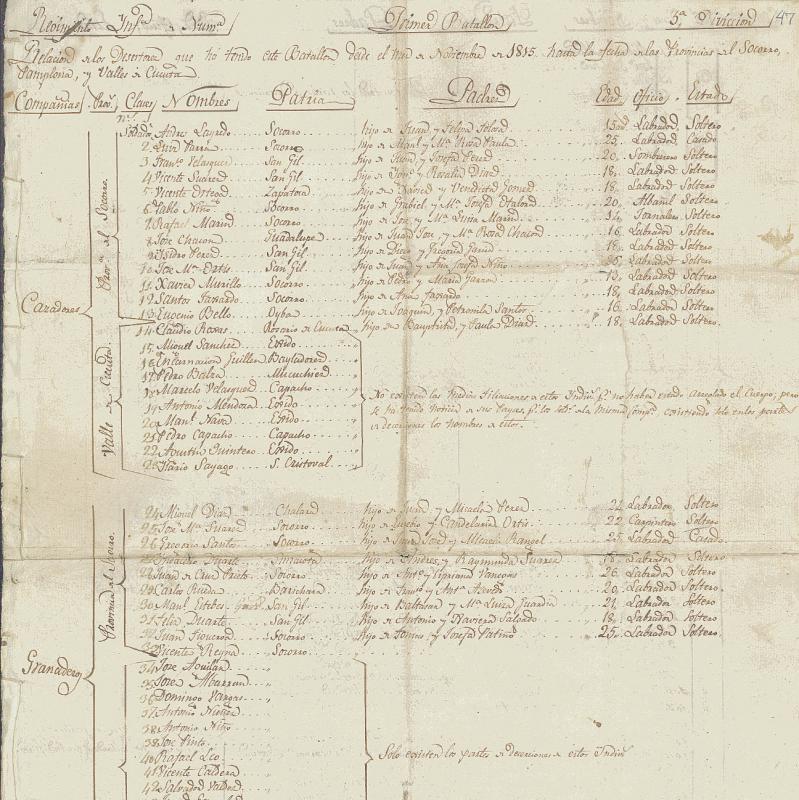 Regimiento Infª de Numª Primer Batallon 5ª Diviccion 47
Relacion de los Desertores que há tenido este Batallon desde el mes de Noviembre de 1815 hasta la fecha de las Provincias del Socorro,
Pamplona, y Valles de Cucuta.
Compañias Provª Clases Nombres Patria Padres Edad Oficio Estado
nº 1
Soldado Andres Laredo Socorro hijo de Juan y Felipa 15 Labrador Soltero
2 Luis Parra Socorro hijo de Manl. y Mª Rosa Paula 25 Labrador Casado
3 Franº Velasquez San Gil hijo de Juan y Josefa Perez 20 Sombrerero Soltero
4 Vicente Suarez San Gil hijo de y Rosalia Diaz 18 Labrador Soltero
5 Vicente Zapatoca hijo de y Gomez 18 Labrador Soltero
6 Pablo Niño Socorro hijo de Gabriel y Mª Josefa 20 Albañil Soltero
7 Rafael Marin Socorro hijo de Jose y Mª Luisa Marin 14 Jornalero Soltero
8 Jose Chacon Guadalupe hijo de Juan Jose y Mª Rosa Chacon 16 Labrador Soltero
9 Isidro Perez San Gil hijo de Diego y Gregoria 18 Labrador Soltero
10 Jose Mª Ortis San Gil hijo de Juan y Ana Josefa Niño Labrador Soltero
11 Xavier Murillo Socorro hijo de Pedro y Maria 13 Labrador Soltero
12 Santos Socorro hijo de Ana 18 Labrador Soltero
13 Eugenio Bello Oyba hijo de Joaquin y Petronila Santos 16 Labrador Soltero
14 Claudio Roxas Rosario de Cucuta hijo de Bauptista y Paula Diaz 18 Labrador Soltero
Cazadores
Provª del Socorro
Valle de Cucuta
15 Miguel Sanchez Egido
16 Encarnacion Guillen Bayladores
17 Pedro Mucuchies
18 Marcelo Velasquez Capacho
19 Antonio Mendoza Egido
20 Manl. Nava Egido
21 Pedro Capacho Capacho
22 Agustin Quintero Egido
23 Ilario Sayago S. Cristoval
No existen las medias filiaciones de estos Indivs. pr. no haber estado arreglado el Cuerpo; pero
se ha tenido noticia de sus bajas, pr. los de la misma Compª consistiendo solo en los partes
de deserciones los nombres de estos.
24 Miguel Diaz Chalará hijo de Juan y Micaela Perez 21 Labrador Soltero
25 Jose Mª Suarez Socorro hijo de Eugenio y Candelaria Ortis 22 Carpintero Soltero
26 Gregorio Santos Socorro hijo de Juan Jose y Micaela Rangel 25 Labrador Casado
Duarte Simacota hijo de Andres y Raymunda Suarez 18 Labrador Soltero
28 Juan de Cruz Prieto Socorro hijo de Antº y Cipriana 26 Labrador Soltero
29 Carlos Rueda Barichara hijo de Franº y Antª Azevedo 20 Labrador Soltero
30 Manl. Esteves San Gil hijo de Baltasar y Mª Luisa Guardia 21 Labrador Soltero
31 Felix Duarte San Gil hijo de Antonio y Xaviera Salgado 18 Labrador Soltero
32 Juan Figueroa Socorro hijo de Tomas y Josefa Patiño 25 Labrador Soltero
33 Vicente Reyna Socorro
Provincia del Socorro
Granaderos
34 Jose Aguilar
35 Jose Albarran
36 Domingo Vargas
37 Antonio
38 Antonio Niño
39 Jose Pinto
40 Rafael Leo
41 Vicente Caldera
42 Salvador Valdez
Solo existen los partes de deserciones de estos Indivs.